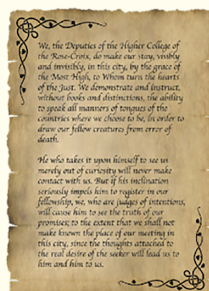 We, the Deputies of the Higher College of
the Rose-Croix, do make our stay, visibly
and invisibly, in this city, by the grace of
the Most High, to Whom turn the hearts
of the Just. We demonstrate and instruct,
without books and distinctions, the ability
to speak all manners of tongues of the
countries where we choose to be, in order to
draw our fellow creatures from error of
death.
He who takes it upon himself to see us
merely out of curiosity will never make
contact with us. But if his inclination
seriously impels him to register in our
fellowship, we, who are judges of intentions,
will cause him to see the truth of our
promises; to the extent that we shall not
make known the place of our meeting in
this city, since the thoughts attached to
the real desire of the seeker will lead us to
him and him to us.